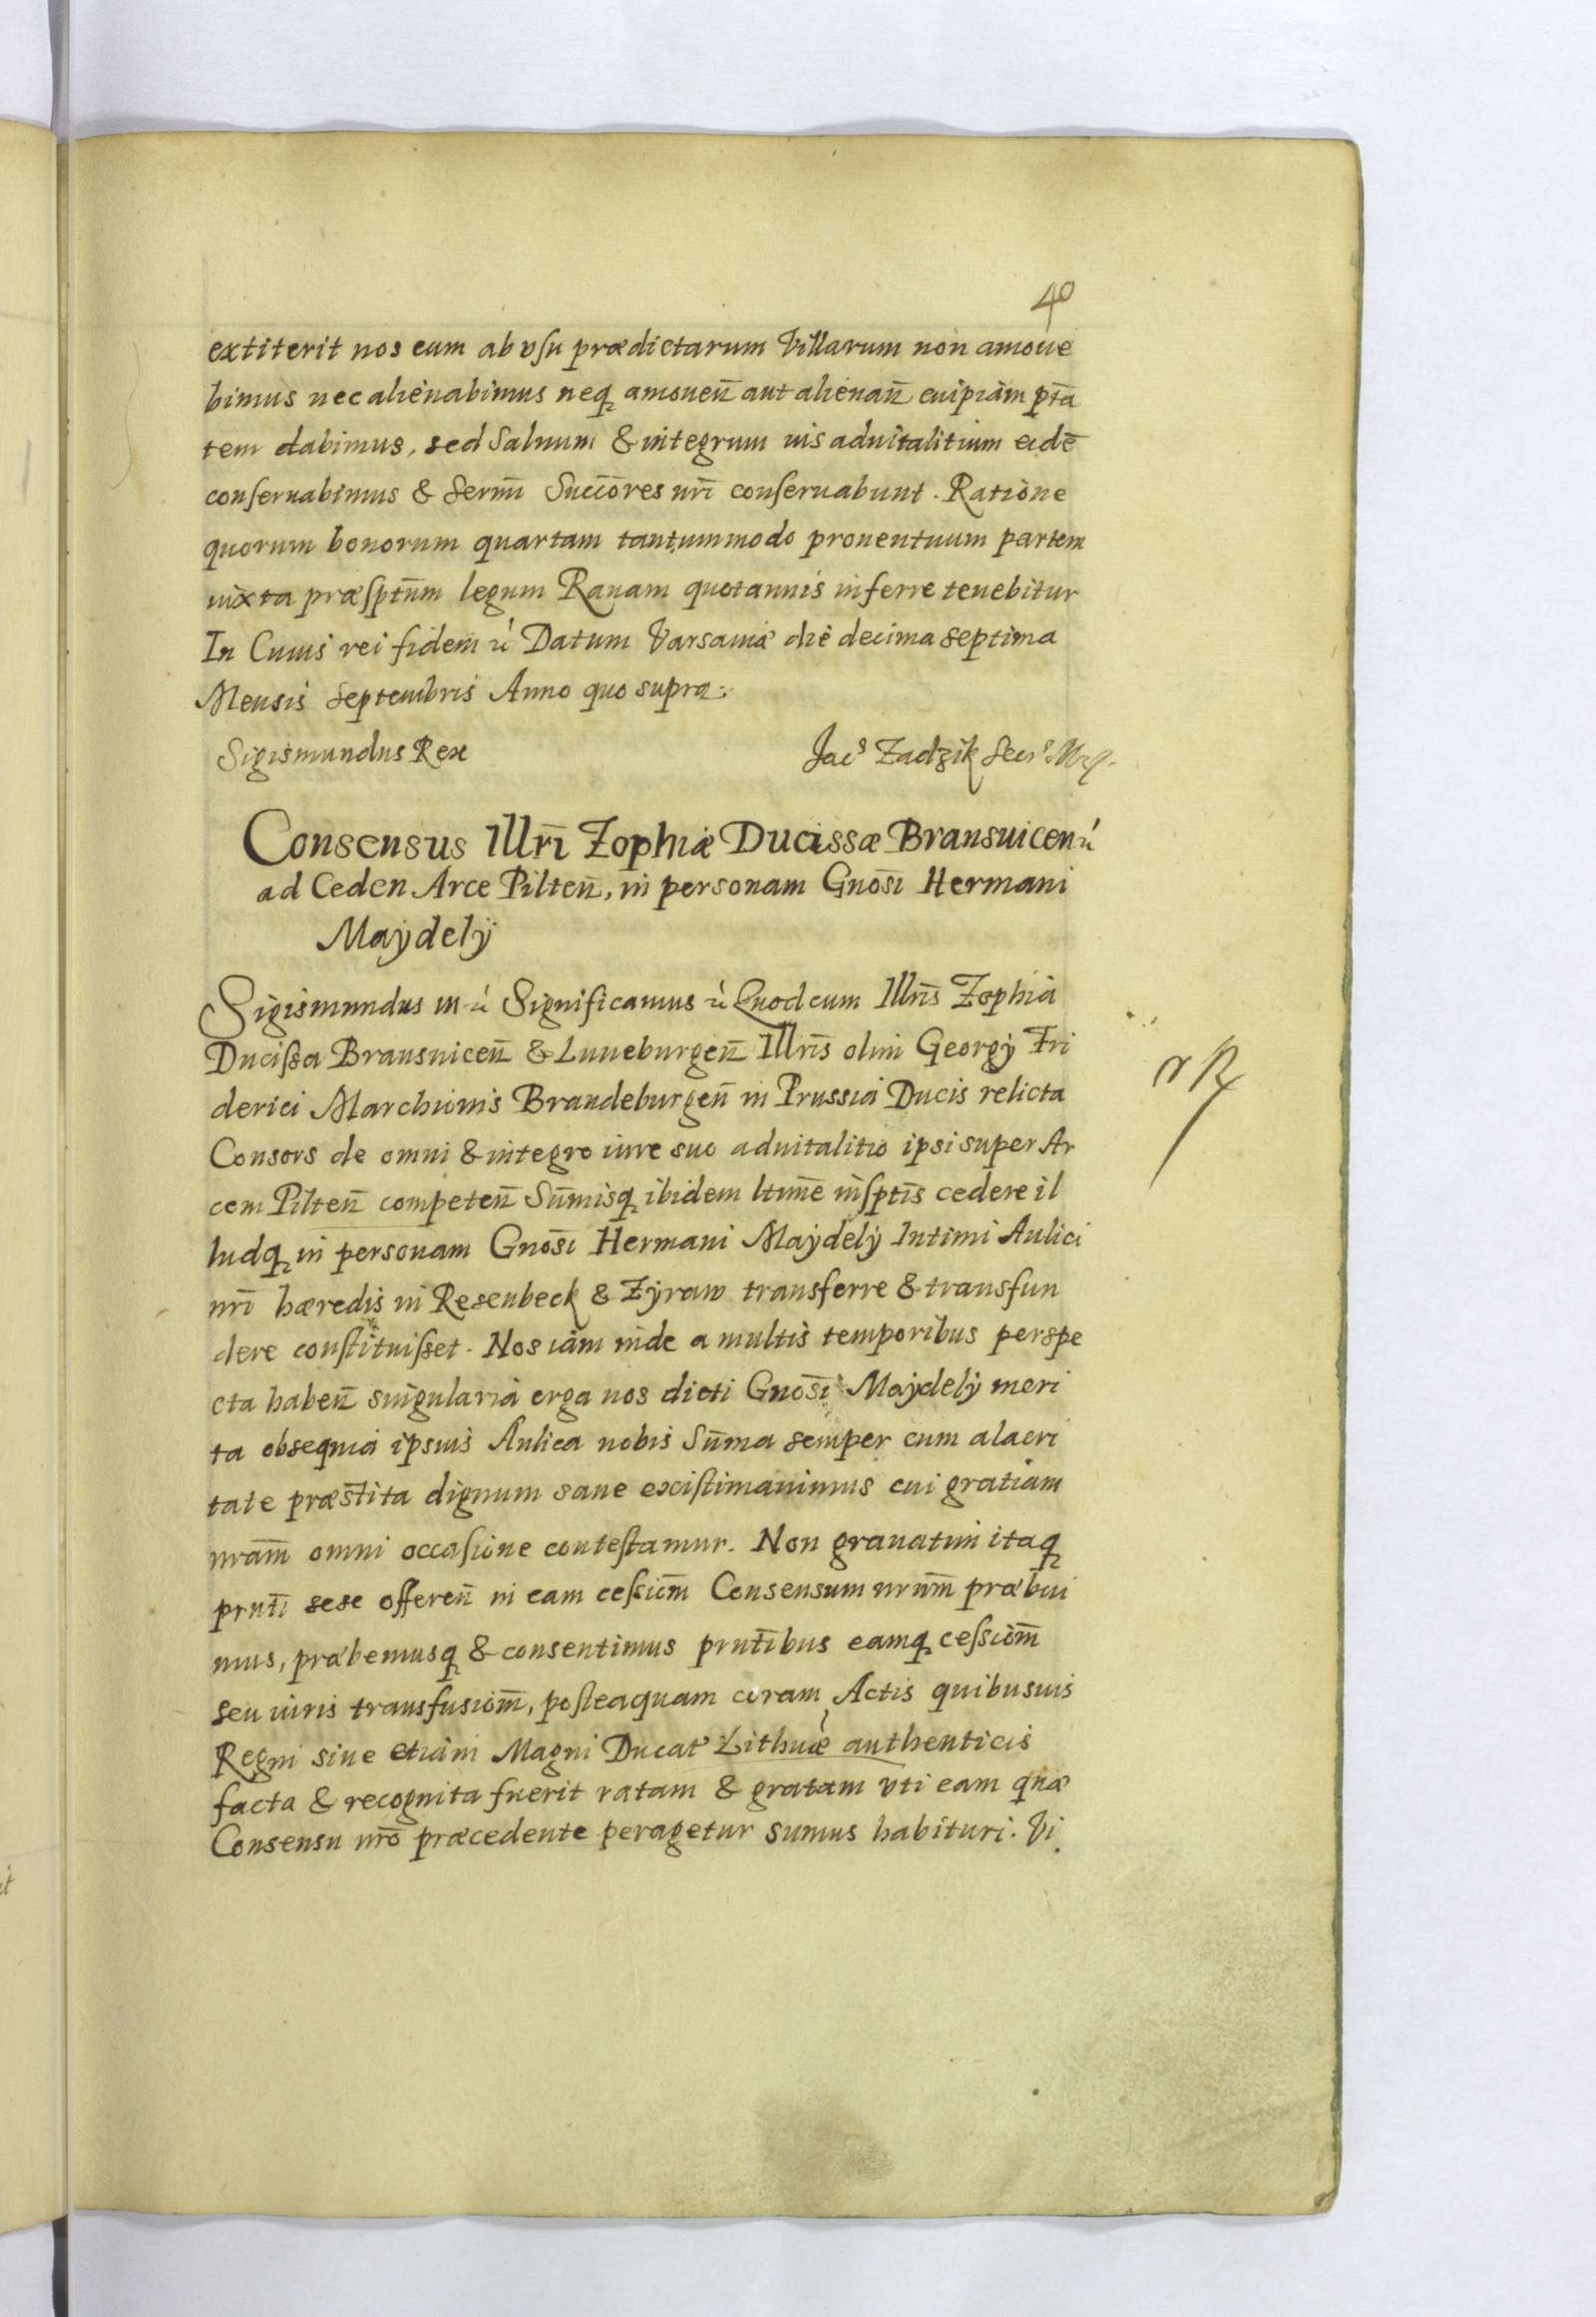 40
extiterit nos eum ab vsu prædictarum Villarum non amoue
bimus nec alienabimus neq amouen̄ aut alienan̄ cuipiam pt̄a
tem dabimus, sed Saluum & integrum ius aduitalitium eidē
conseruabimus & Serm̄i Succōres nr̄i conseruabunt. Ratione
quorum bonorum quartam tantummodo prouentuum partem
iuxta præsptūm legum Rauam quotannis inferre tenebitur
In Cuius rei fidem &c Datum Varsauiæ die decima septima
Mensis Septembris Anno quo supra.
Sigismundus Rex
Jac⁹ Zadzik Secr⁹
Consensus Illrī Zophiæ Ducissæ Bransuicen &c
ad Ceden Arce Pilten̄, in personam Gnōsi Hermani
Maÿdelÿ
Sigismundus III &c Significamus &c Quod cum Illrīs Zophia
Ducissa Bransuicen̄ & Luneburgen̄ Illrīs olim Georgÿ Fri
derici Marchionis Brandeburgen̄ in Prussia Ducis relicta
Consors de omni & integro iure suo aduitalitio ipsi super Ar
cem Pilten̄ competen̄ Sum̄isq ibidem ltīme insptīs cedere il
ludq in personam Gnōsi Hermani Maÿdelÿ Intimi Aulici
nrī hæredis in Resenbeck & Zÿraw transferre & transfun
dere constituisset. Nos iam inde a multis temporibus perspe
cta haben̄ singularia erga nos dicti Gnōsi Maÿdelÿ meri
ta obsequia ipsius Aulica nobis Sum̄a semper cum alacri
tate præstita dignum sane existimauimus cui gratiam
nrām omni occasione contestamur. Non grauatim itaq
prntī sese offeren̄ in eam cessiom̄ Consensum nrūm præbui
mus, præbemusq & consentimus prntībus eamq cessiom̄
seu iuris transfusiom̄, posteaquam coram Actis quibusuis
Regni siue etiam Magni Ducat⁹ Lithuæ authenticis
facta & recognita fuerit ratam & gratam vti eam quæ
Consensu nrō præcedente peragetur sumus habituri. Vi